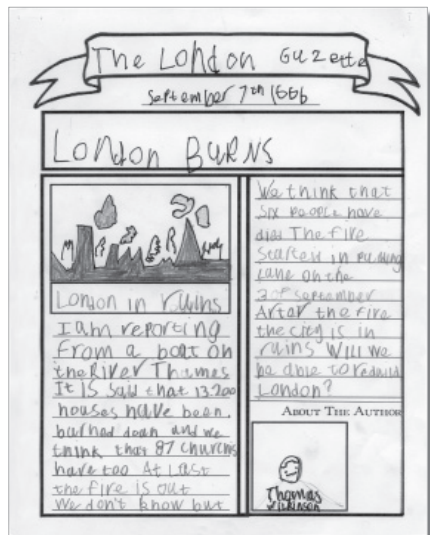 The London Guzette
September 7th 1666
London BURNS
London in ruins
I am reporting
from a boat on
the River Thames
It is said that 13.200
houses have been.
burned down and we
think that 87 churchis
have too At last
the fire is out
We don't know but
We think that
six people have
died The fire
Started in pudding
Lane on the
2 of september
After the fire
the city is in
ruins Will we
be able to rebuild
London?
ABOUT THE AUTHOR
Thomas
Wilkinson